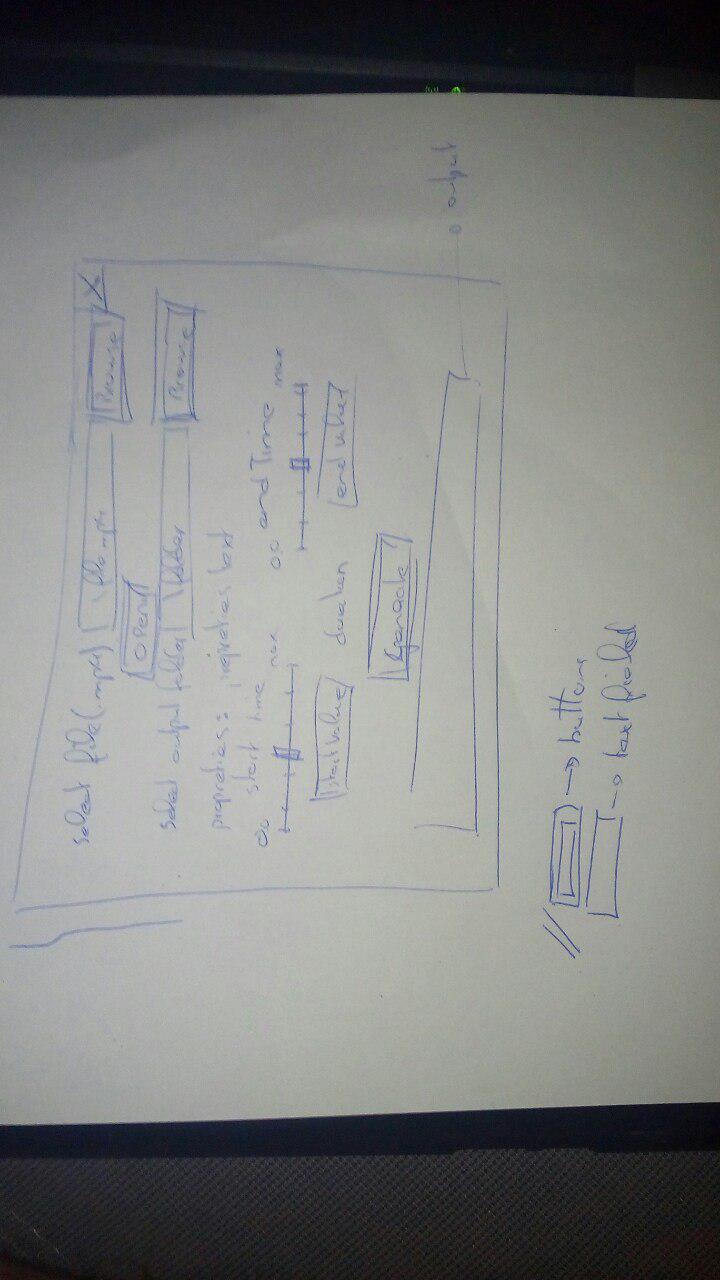 select file(.mp4) \file.mp4 Browse X
open
select output folder \folder Browse
propreties: propreties text
0.0 start time max 0.0 end Time max
start value duration end value
Generate
output
// → buttons
→ text fieled